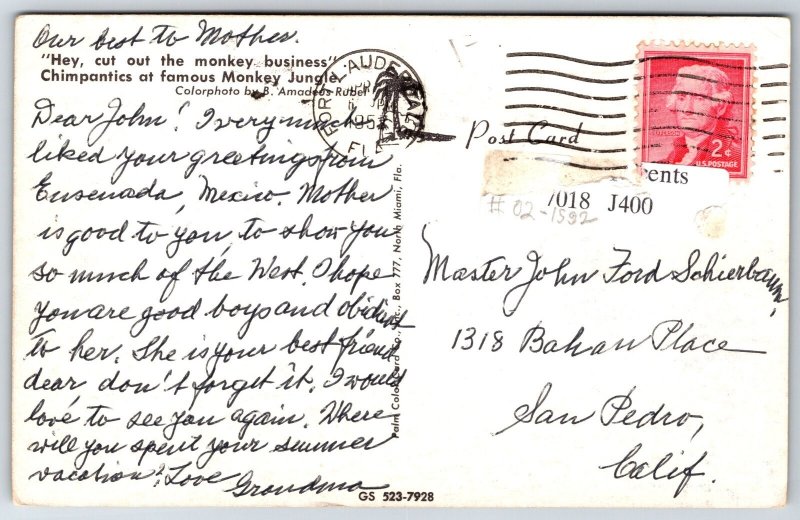 Our best to Mother.
"Hey, cut out the monkey business"
Chimpantics at famous Monkey Jungle.
Colorphoto by B. Amadeus Rubel
Dear John! I very much
liked your greetings from
Ensenada, Mexico. Mother
is good to you, to show you
so much of the West. I hope
you are good boys and obidient
to her. She is your best friend
dear don't forget it. I would
love to see you again. Where
will you spent your summer
vacation? Love
Grandma
GS 523-7928
Palm Color Card Co., Inc., Box 777, North Miami, Fla.
FORT LAUDERDALE
FLA
Post Card
2¢
U.S. POSTAGE
cents
7018 J400
# 02-1592
Master John Ford Schierbaum,
1318 Bahan Place
San Pedro,
Calif.